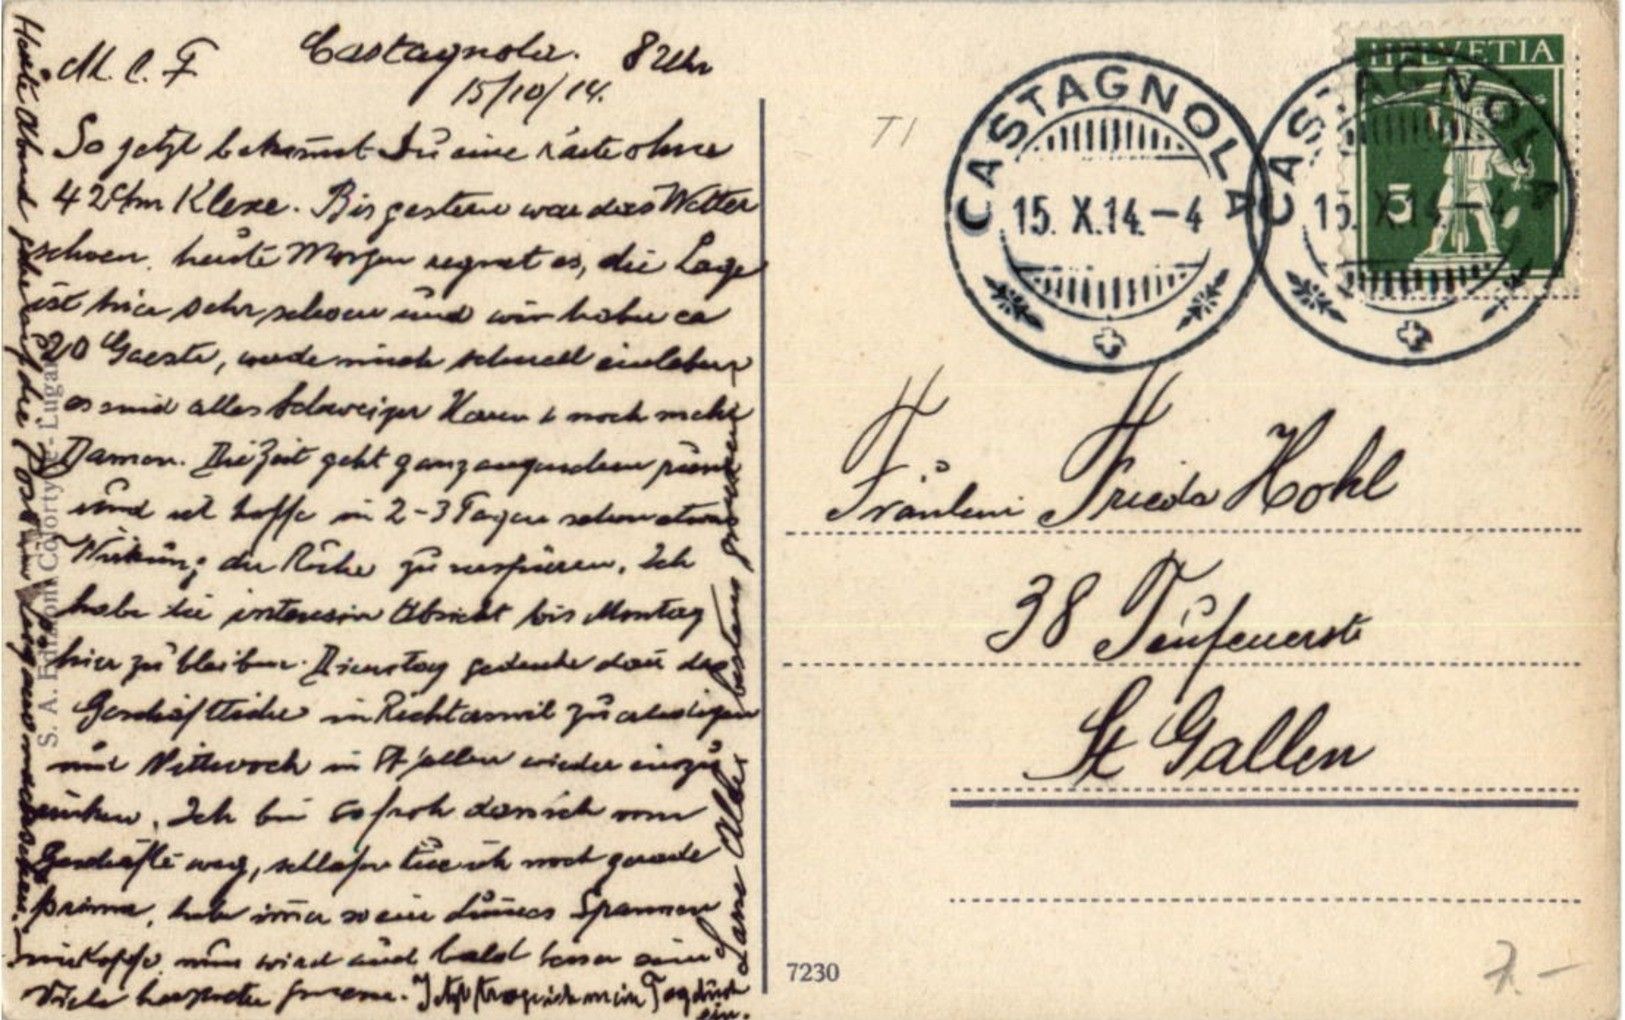 M. C. F
Castagnola. 8 Uhr
15/10/14.
So jetzt bekommst Du eine Karte ohne
42 Ctm Klexe. Bis gestern war das Wetter
schoen, heute Morgen regnet es, die Lage
ist hier sehr schoen und wir haben ca
20 Gaeste, werde mich schnell einleben
es sind alles Schweizer Herren & noch mehr
Damen. Die Zeit geht ganz angenehm rum
und ich hoffe in 2-3 Tagen schon etwas
Wirkung der Ruhe zu verspüren. Ich
habe die Absicht bis Montag
hier zu bleiben. Dienstag gedenke dann das
Geschäftliche in Richterswil zu erledigen
und Mittwoch in St Gallen wieder einzu
rücken. Ich bin so froh dass ich vom
Geschäfte weg, schlafen tue ich noch gerade
prima, habe immer so ein Spannen
im Kopfe, nun wird auch bald besser sein
Viele herzliche Jetzt trage ich mein Tagebuch
ein.
Lasse Alle bestens grüssen
Heute Abend gehe auf die Post um
S. A. Edizioni Co Lugano
TI
CASTAGNOLA
15. X.14.-4
CASTAGNOLA
15. X.14.-4
HELVETIA
5
Fräulein Frieda Hohl
38 Teufenerstr
St Gallen
7230
7.-